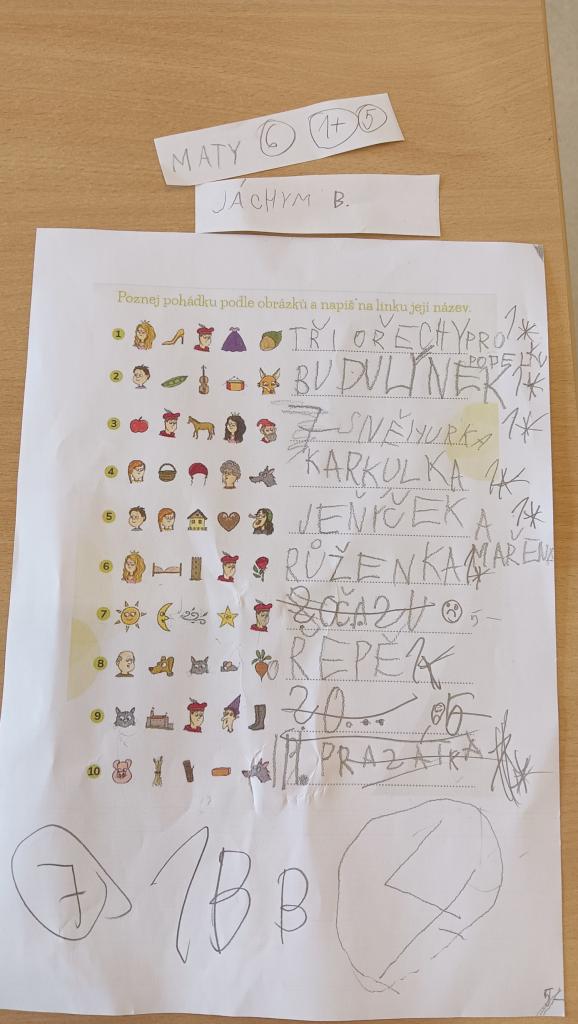 MATY 6 1+ 5
JÁCHYM B.
Poznej pohádku podle obrázků a napiš na linku její název.
1 TŘI OŘECHY PRO 1*
POPELKU
2 BUDULÝNEK 1*
3 7 SNĚHURKA 1*
4 KARKULKA 1*
5 JENÍČEK A 1*
MAŘENA
6 RŮŽENKA 1*
7 5-
8 ŘEPĚ 1*
9 20... 5
10 3 PRAZÁTKA 1*
7 1B B